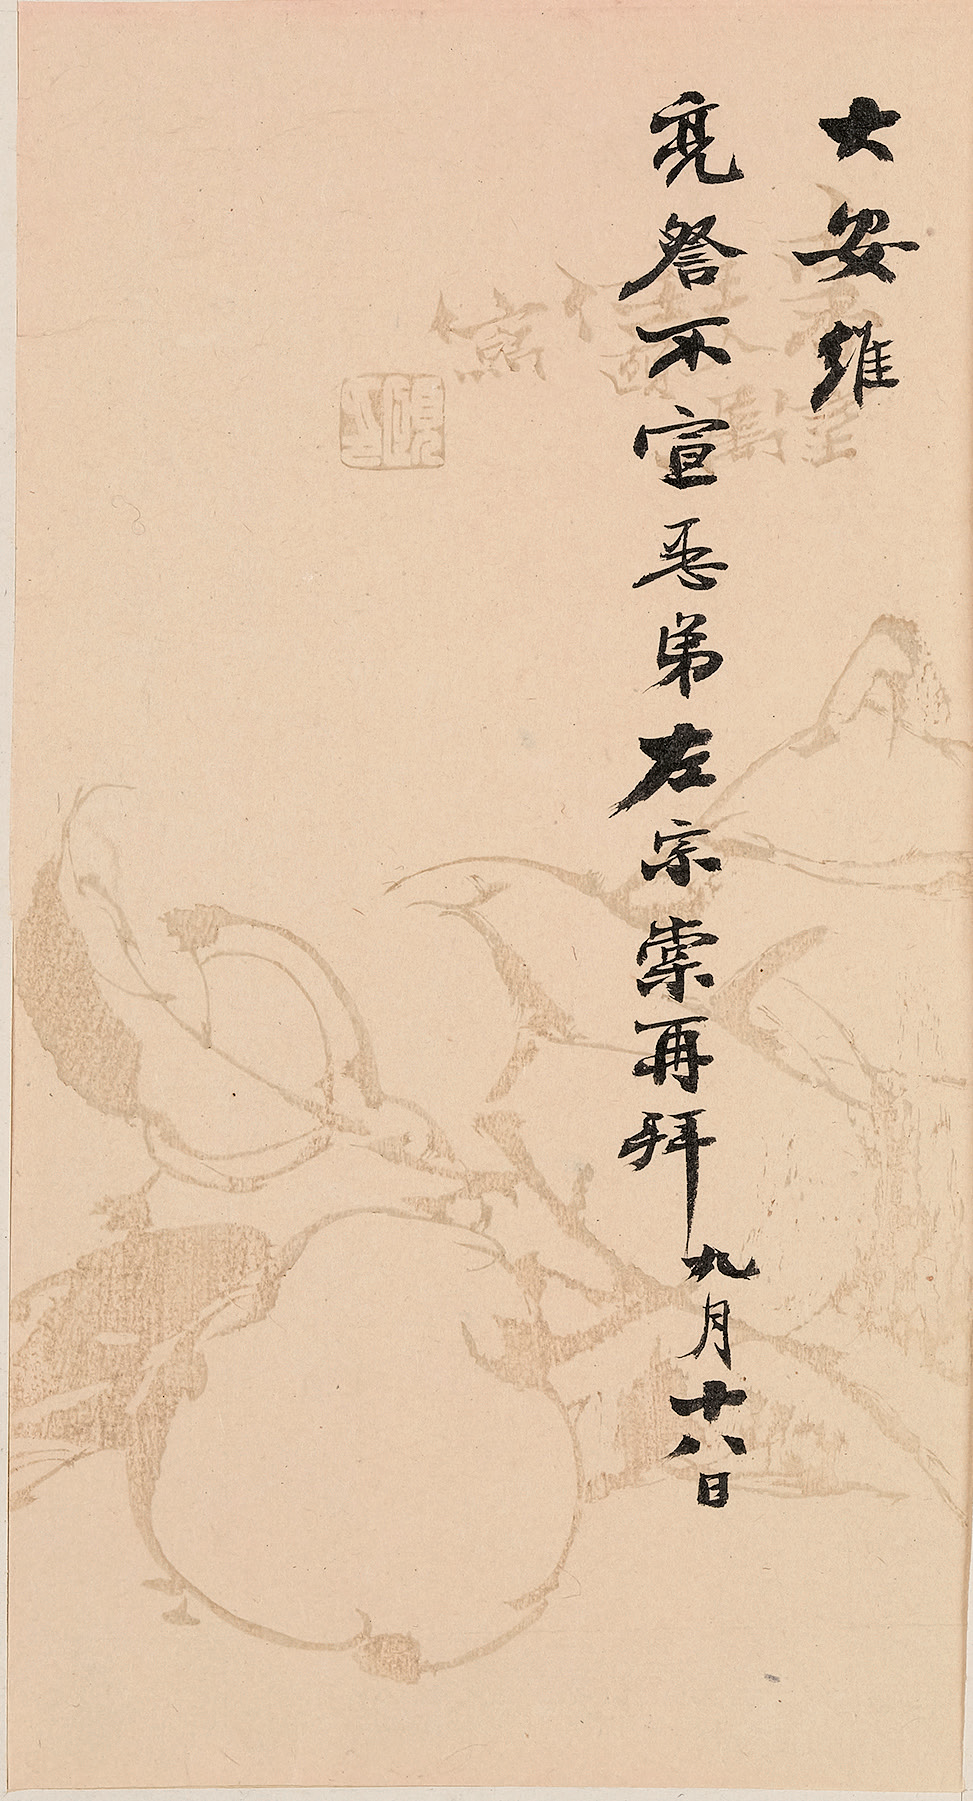 大安維
亮詧不宣愚弟左宗棠再拜九月十八日